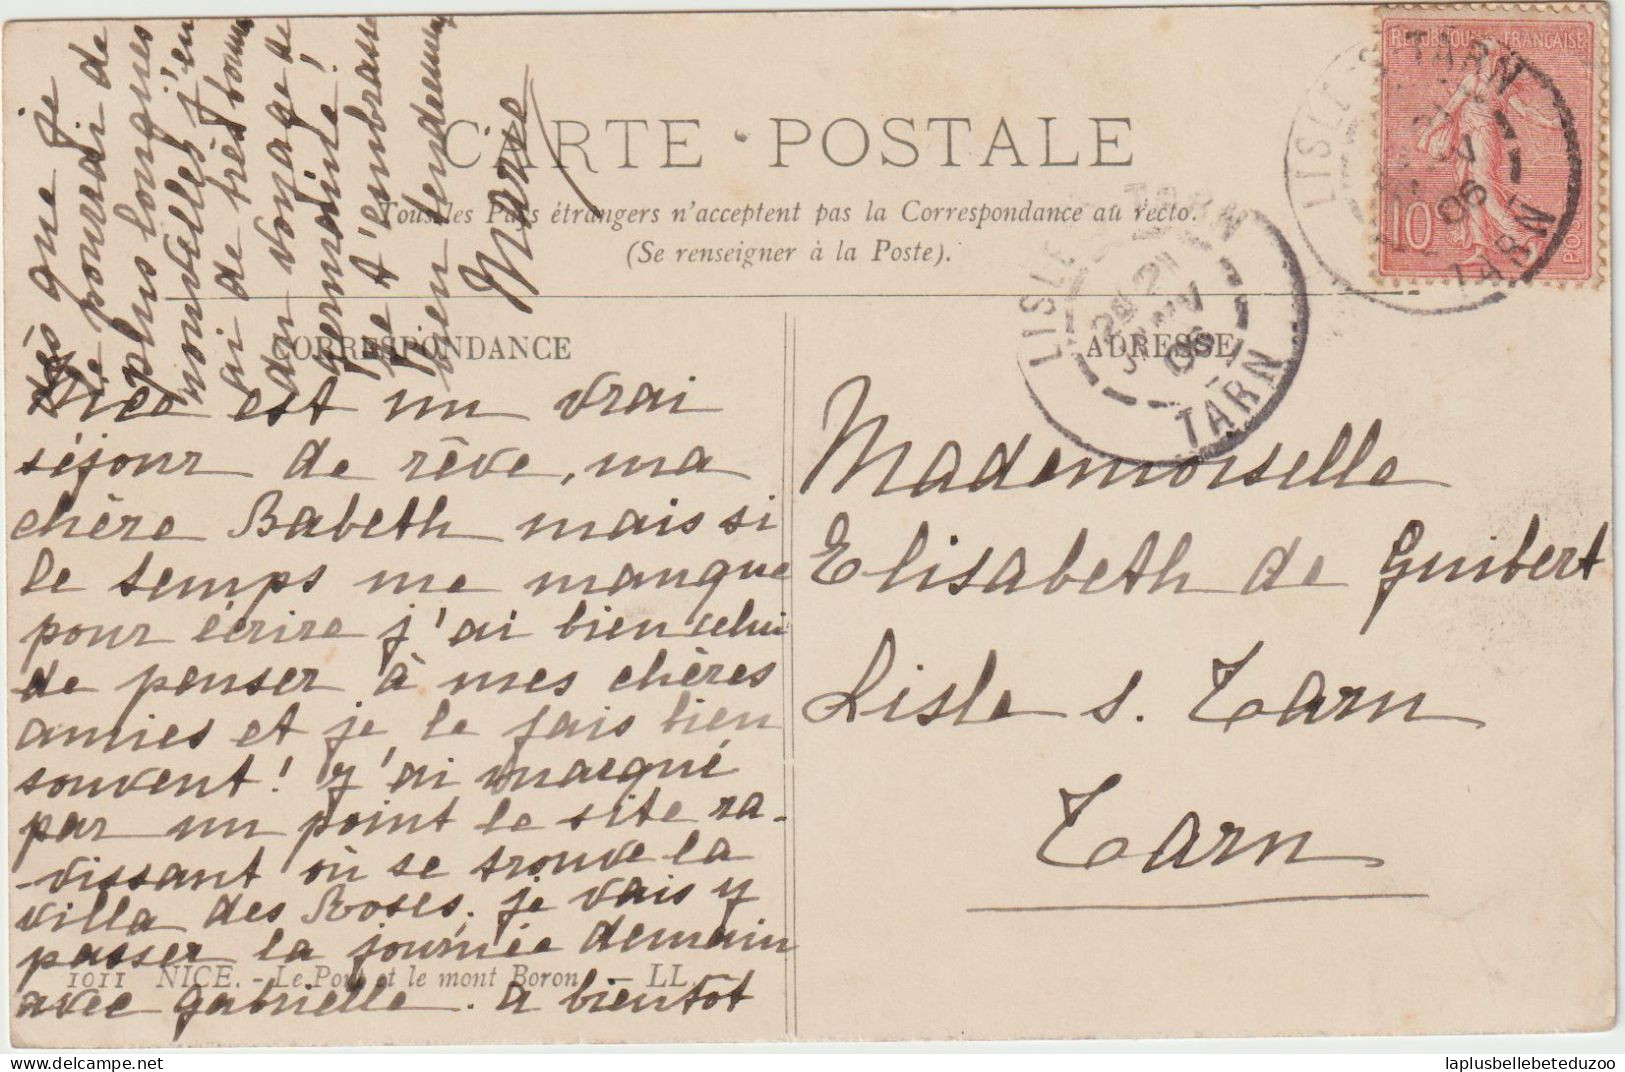 CARTE POSTALE
Tous les Pays étrangers n'acceptent pas la Correspondance au recto.
(Se renseigner à la Poste).
CORRESPONDANCE
ADRESSE
REPUBLIQUE FRANÇAISE
10
LISLE S TARN
06
TARN
LISLE S TARN
21
JANV
06
TARN
Nice est un vrai
séjour de rêve, ma
chère Babeth mais si
le temps me manque
pour écrire j'ai bien celui
de penser à mes chères
amies et je le fais bien
souvent ! J'ai marqué
par un point le site ra-
-vissant où se trouve la
villa des Roses. je vais y
passer la journée demain
avec Gabrielle. A bientôt
dès que je
le pourrai de
plus longues
nouvelles j'en
ai de très bonnes
du voyage de
Germaine !
Je t'embrasse
bien tendrement
Marse
1011 NICE. - Le Port et le mont Boron. - LL.
Mademoiselle
Elisabeth de Guibert
Lisle s. Tarn
Tarn
laplusbellebeteduzoo